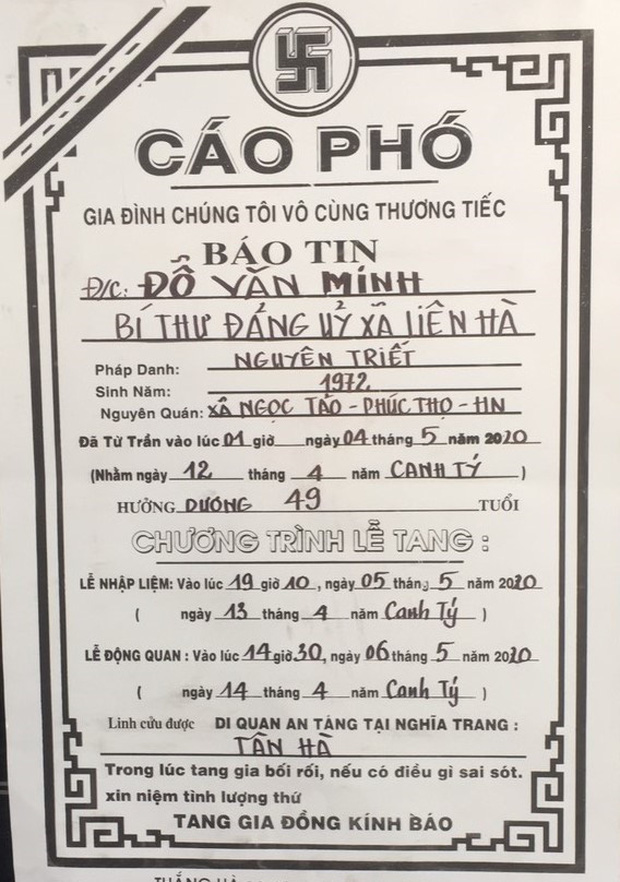 CÁO PHÓ
GIA ĐÌNH CHÚNG TÔI VÔ CÙNG THƯƠNG TIẾC
BÁO TIN
Đ/C: ĐỖ VĂN MINH
BÍ THƯ ĐẢNG UỶ XÃ LIÊN HÀ
Pháp Danh: NGUYÊN TRIẾT
Sinh Năm: 1972
Nguyên Quán: XÃ NGỌC TẢO - PHÚC THỌ - HN
Đã Từ Trần vào lúc 01 giờ ngày 04 tháng 5 năm 2020
(Nhằm ngày 12 tháng 4 năm CANH TÝ )
HƯỞNG DƯƠNG 49 TUỔI
CHƯƠNG TRÌNH LỄ TANG :
LỄ NHẬP LIỆM: Vào lúc 19 giờ 10, ngày 05 tháng 5 năm 2020
( ngày 13 tháng 4 năm Canh Tý )
LỄ ĐỘNG QUAN : Vào lúc 14 giờ 30, ngày 06 tháng 5 năm 2020
( ngày 14 tháng 4 năm Canh Tý )
Linh cửu được DI QUAN AN TÁNG TẠI NGHĨA TRANG :
TÂN HÀ
Trong lúc tang gia bối rối, nếu có điều gì sai sót.
xin niệm tình lượng thứ
TANG GIA ĐỒNG KÍNH BÁO